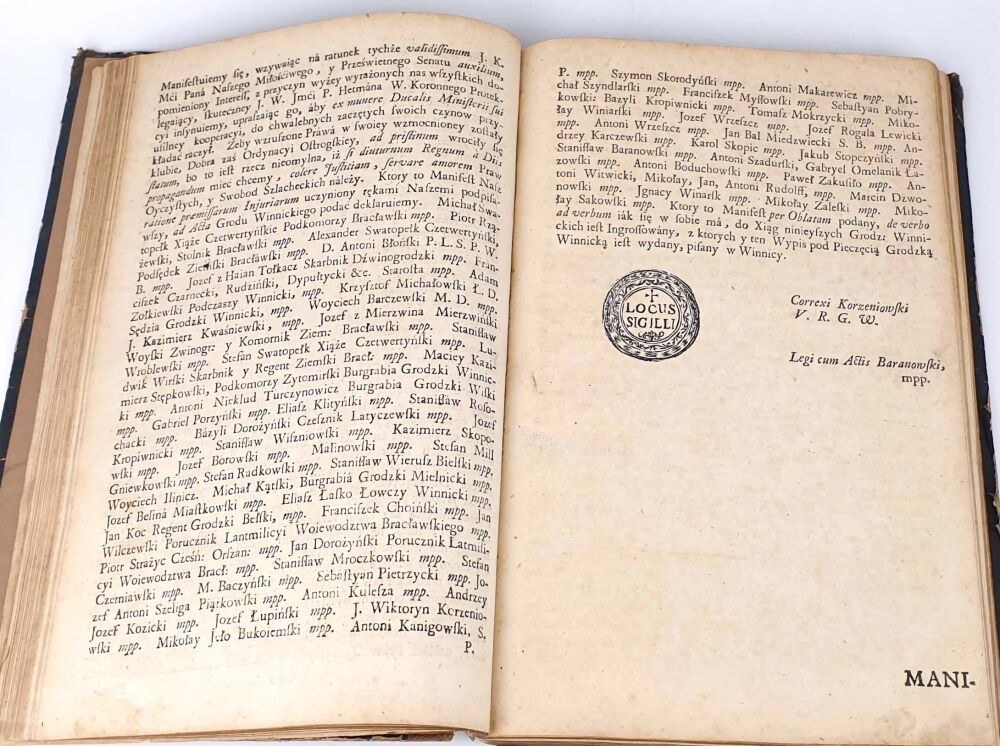 Manifestuiemy się, wzywaiąc ná ratunek tychże validissimum J. K.
Mći Paná Naszego Miłościwego, y Prześwietnego Senatu auxilium,
pomieniony Interess, z przyczyn wyżey wyrażonych nas wszystkich do-
legaiący, skuteczney J. W. Jmći P. Hetmána W. Koronnego Protek-
cyi insynuiemy, upraszaiąc go, aby ex munere Ducalis Ministerii sui
usilney kooperacyi, do chwalebnych zaczętych swoich czynow przy-
kładać raczył. Żeby wzruszone Prawá w swoiey wzmocnioney zostáły
klubie, Dobra zaś Ordynacyi Ostrogskiey, ad pristinum wrociły się
statum, bo to iest rzecz nieomylna, iż si diuturnum Regnum à Diis
propagandum mieć chcemy, colere Justitiam, servare amorem Praw
Oyczystych, y Swobod Szlacheckich należy. Ktory to Manifest Nasz
ratione præmissarum Injuriarum uczyniony rękami Naszemi podpisa-
wszy, ad Acta Grodu Winnickiego podać deklaruiemy. Michał Swa-
topełk Xiąże Czetwertyński Podkomorzy Bracławski mpp. Piotr Rzą-
żewski, Stolnik Bracławski mpp. Alexander Swatopełk Czetwertyński,
Podsędek Ziemski Bracławski mpp. D. Antoni Błoński P. L. S. P. W.
B. mpp. Jozef z Haian Tołkacz Skarbnik Dźwinogrodzki mpp. Fran-
ciszek Czarnecki, Rudziński, Dypułtycki &c. Starosta mpp. Adam
Zołkiewski Podczaszy Winnicki, mpp. Krzysztof Michałowski Ł. D.
Sędzia Grodzki Winnicki, mpp. Woyciech Barczewski M. D. mpp.
J. Kazimierz Kwaśniewski, mpp. Jozef z Mierzwina Mierzwiński
Woyski Zwinogr: y Komornik Ziem: Bracławski mpp. Stanisław
Wroblewski mpp. Stefan Swatopełk Xiąże Czetwertyński mpp. Lu-
dwik Wirski Skarbnik y Regent Ziemski Bracł: mpp. Maciey Kazi-
mierz Stępkowski, Podkomorzy Zytomirski Burgrabia Grodzki Winnic-
ki mpp. Antoni Nieklud Turczynowicz Burgrabia Grodzki Wiski
mpp. Gabriel Porzyński mpp. Eliasz Klityński mpp. Stanisław Roso-
chacki mpp. Bázyli Dorożyński Czesnik Latyczewski mpp. Jozef
Kropiwnicki mpp. Stanisław Wiszniowski mpp. Kazimierz Skopo-
wski mpp. Jozef Borowski mpp. Malinowski mpp. Stefan Mill
Gniewkowski mpp. Stefan Radkowski mpp. Stanisław Wierusz Bielski mpp.
Woyciech Ilinicz. Michał Kątski, Burgrabiá Grodzki Mielnicki mpp.
Jozef Beliná Miastkowski mpp. Eliasz Łasko Łowczy Winnicki mpp.
Jan Koc Regent Grodzki Belski, mpp. Franciszek Choiński mpp. Jan
Wilczewski Porucznik Lantmilicyi Woiewodztwa Bracławskiego mpp.
Piotr Strażyc Cześń: Orszan: mpp. Jan Dorożyński Porucznik Latmili-
cyi Woiewodztwa Bracł: mpp. Stanisław Mroczkowski mpp. Stefan
Czerniawski mpp. M. Baczyński mpp. Sebastyan Pietrzycki mpp. Jo-
zef Antoni Szeliga Piątkowski mpp. Antoni Kulesza mpp. Andrzey
Jozef Kozicki mpp. Jozef Łupiński mpp. J. Wiktoryn Korzenio-
wski mpp. Mikołay Jeło Bukoiemski mpp. Antoni Kanigowski, S.
P.
P. mpp. Szymon Skorodyński mpp. Antoni Makarewicz mpp. Mi-
chał Szyndlarski mpp. Franciszek Mysłowski mpp. Sebastyan Pobry-
kowski: Bazyli Kropiwnicki mpp. Tomasz Mokrzycki mpp. Miko-
łay Winiarski mpp. Jozef Wrzeszcz mpp. Jozef Rogala Lewicki
mpp. Antoni Wrzeszcz mpp. Jan Bal Miedzwiecki S. B. mpp. An-
drzey Karczewski mpp. Karol Skopic mpp. Jakub Stopczyński mpp.
Stanisław Baranowski mpp. Antoni Szadurski, Gabryel Omelanik Ła-
zowski mpp. Antoni Boduchowski mpp. Paweł Zakusiło mpp. An-
toni Witwicki, Mikołay, Jan, Antoni Rudolff, mpp. Marcin Dźwo-
nowski mpp. Jgnacy Winarsk mpp. Mikołay Zaleski mpp. Miko-
łay Sakowski mpp. Ktory to Manifest per Oblatam podany, de verbo
ad verbum iák się w sobie má, do Xiąg ninieyszych Grodz: Winni-
ckich iest Ingrossowány, z ktorych y ten Wypis pod Pieczęcią Grodzką
Winnicką iest wydany, pisany w Winnicy.
LOCUS
SIGILLI
Correxi Korzeniowski
V. R. G. W.
Legi cum Actis Baranowski,
mpp.
MANI-